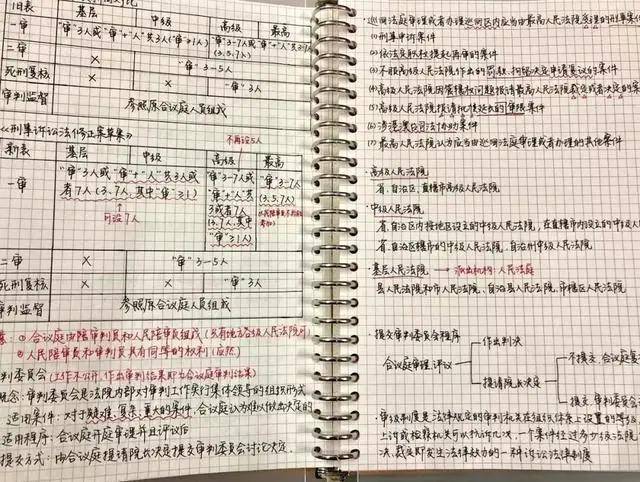 旧表
基层 中级 高级 最高
一审 "审"3人或"审"+"人"共3人("审"≥1人) "审"3-7人或"审"+"人"共3-7人 (3.5.7人)
二审 × "审"3-5人
死刑复核 × × "审"3人
审判监督 参照原合议庭人员组成
《刑事诉讼法(修正案草案)》 不再设5人
新表 基层 中级 高级 最高
一审 "审"3人或"审"+"人"共3人或者7人(3.7人,其中"审"≥1) 可设7人
"审"3-7人或"审"+"人"共3或者7人(3.7人,其中"审"≥1人)
"审"3-7人(3.5.7人)
二审 × "审"3-5人
死刑复核 × × "审"3人
审判监督 参照原合议庭人员组成
①合议庭由陪审判员和人民陪审员组成(只有地方各级人民法院可)
②人民陪审员和审判员具有同等的权利(应然)
判委员会(工作不公开,作出审判结果即出合议庭审判结果)
概念:审判委员会是法院内部对审判工作实行集体领导的组织形式
适用条件:对于疑难、复杂、重大的案件,合议庭认为难以做出决定的
适用程序:合议庭开庭审理并且评议后
提交方式:由合议庭提请院长决定提交审判委员会讨论决定.
巡回法庭审理或者办理巡回区内应当由最高人民法院受理的刑事案件
(1)刑事申诉案件
(2)依法定职权提起再审的案件
(3)不服高级人民法院作出的罚款、拘留决定申请复议的案件
(4)高级人民法院因管辖权问题报请最高人民法院裁定或者决定的案
(5)高级人民法院报请批准延长的审限案件
(6)涉港澳台司法协助案件
(7)最高人民法院认为应当由巡回法庭审理或者办理的其他案件
高级人民法院
省、自治区、直辖市高级人民法院
中级人民法院
省、自治区内按地区设立的中级人民法院,在直辖市内设立的中级人民
省、自治区辖市的中级人民法院,自治州中级人民法院
基层人民法院 → 派出机构:人民法庭
县人民法院和市人民法院、自治县人民法院、市辖区人民法院
提交审判委员会程序
合议庭审理、评议
作出判决
提请院长决定
不提交,合议庭复
提交,审判委员会
审级制度是法律规定的审判机关在组织体系上设置的等级,
上诉或检察机关可以抗诉几次,一个案件经过多少级法院
决、裁定即发生法律效力的一种诉讼法律制度